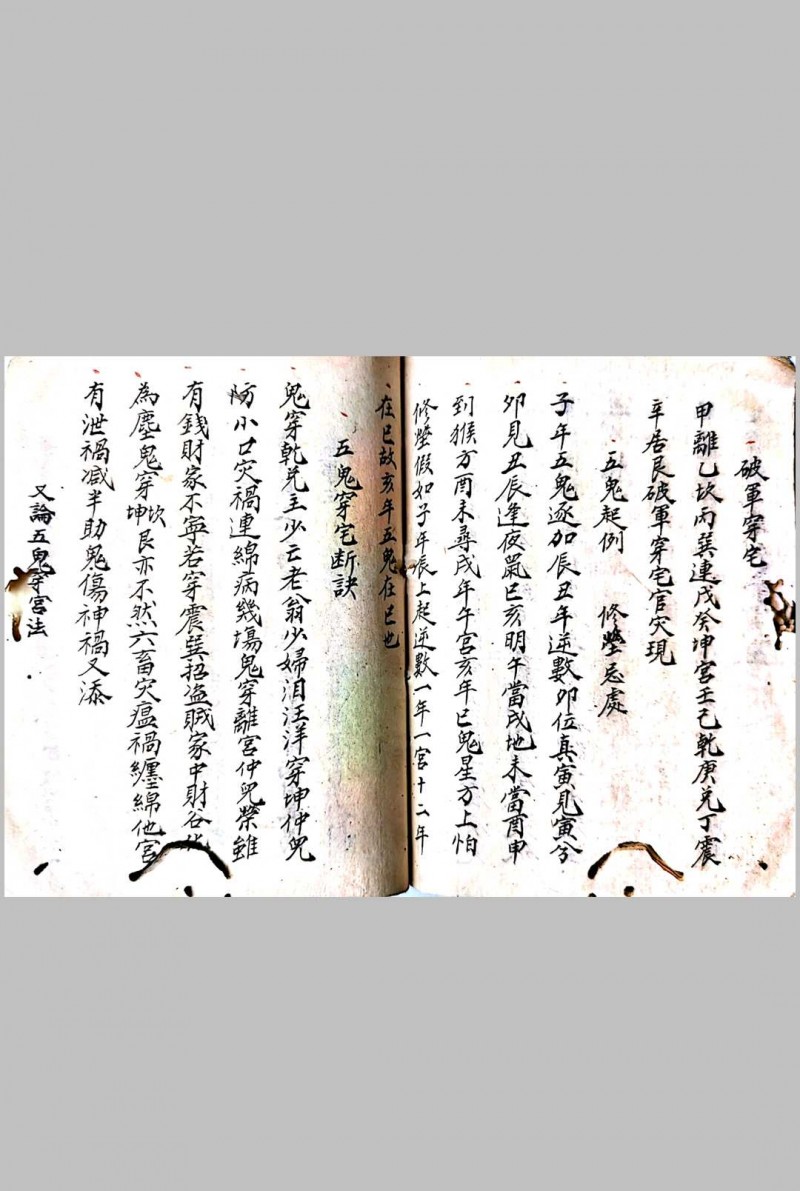 破軍穿宅
甲離乙坎丙巽連戊癸坤宮壬己乾庚兌丁震
辛居艮破軍穿宅官灾現
五鬼起例 修塋忌處
子年五鬼逐加辰丑年逆數卯位真寅見寅兮
卯見丑辰逢夜鼠巳亥明午當戌地未當酉申
到猴方酉未尋戌年午宮亥年巳鬼星方上怕
修塋假如子年辰上起逆數一年一宮十二年
在巳故亥年五鬼在巳也
五鬼穿宅断訣
鬼穿乾兌主少亡老翁少婦泪汪洋穿坤仲兒
防小口灾禍連綿病幾場鬼穿離宮仲兒榮雖
有錢財家不寧若穿震巽招盜賊家中財谷化
為塵鬼穿坎坤艮亦不然六畜灾瘟禍纏綿他宮
有泄禍減半助鬼傷神禍又添
又論五鬼穿宮法